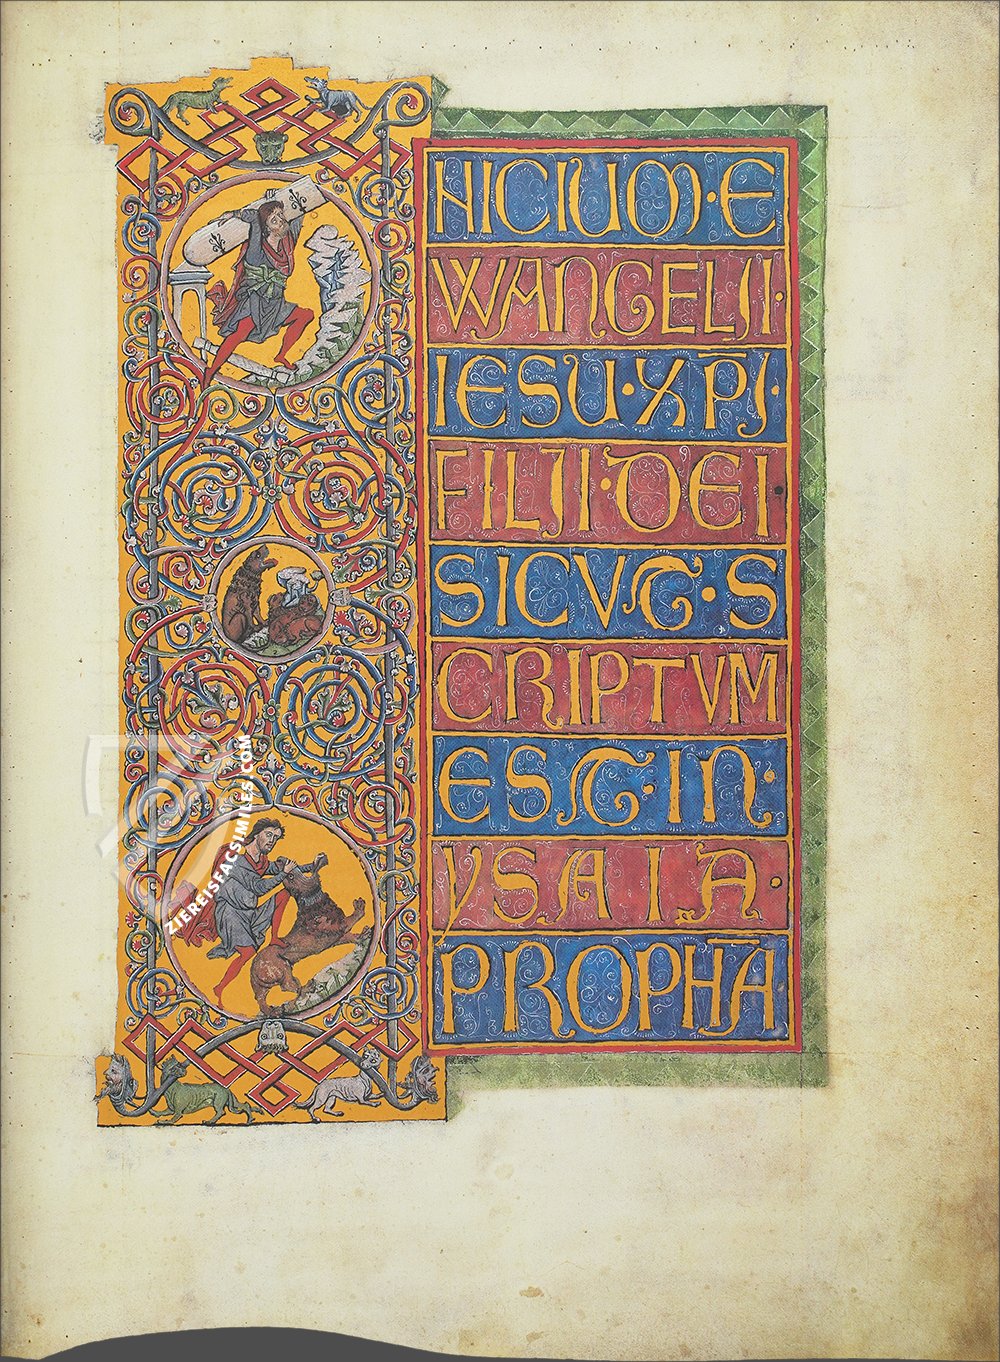 INICIUM·E
WANGELJI·
IESU·XP̄I·
FILJI·DEI
SICVT·S
CRIPTVM
EST·IN·
YSAIA·
PROPHĀ
ZIEREISFACSIMILES.COM